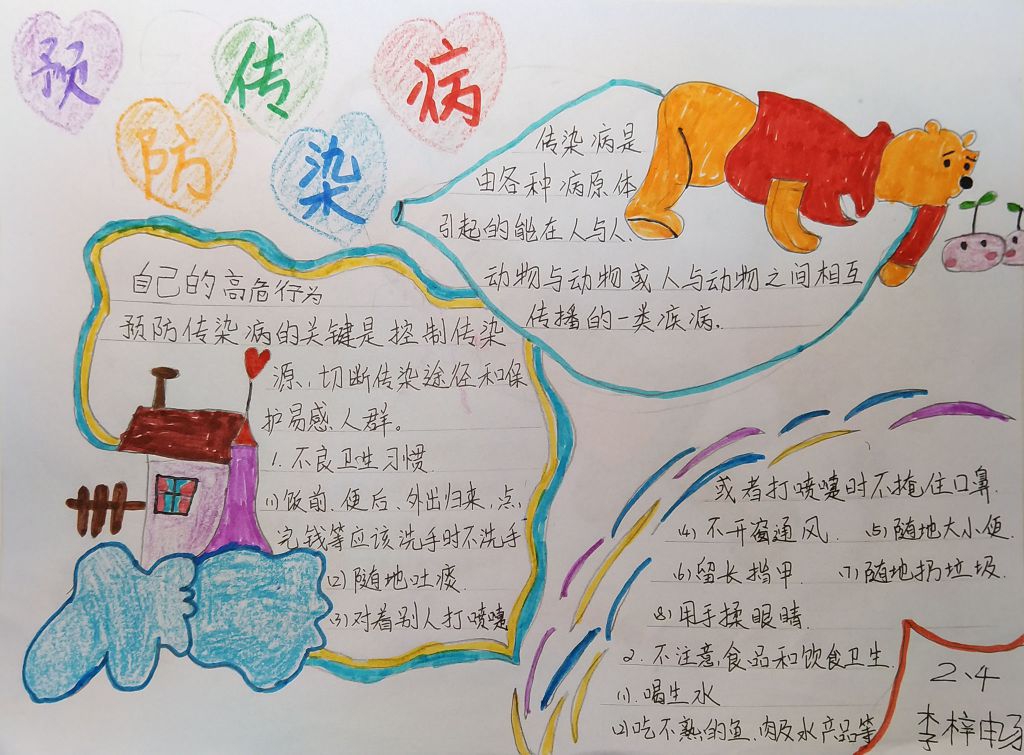 预防传染病
传染病是
由各种病原体
引起的能在人与人、
动物与动物或人与动物之间相互
传播的一类疾病。
自己的高危行为
预防传染病的关键是控制传染
源、切断传染途径和保
护易感人群。
1、不良卫生习惯
(1)饭前、便后、外出归来、点
完钱等应该洗手时不洗手
(2)随地吐痰
(3)对着别人打喷嚏
或者打喷嚏时不掩住口鼻.
(4)不开窗通风. (5)随地大小便.
(6)留长指甲 (7)随地扔垃圾.
(8)用手揉眼睛.
2、不注意食品和饮食卫生.
(1)喝生水
(2)吃不熟的鱼、肉及水产品等
2、4
李梓